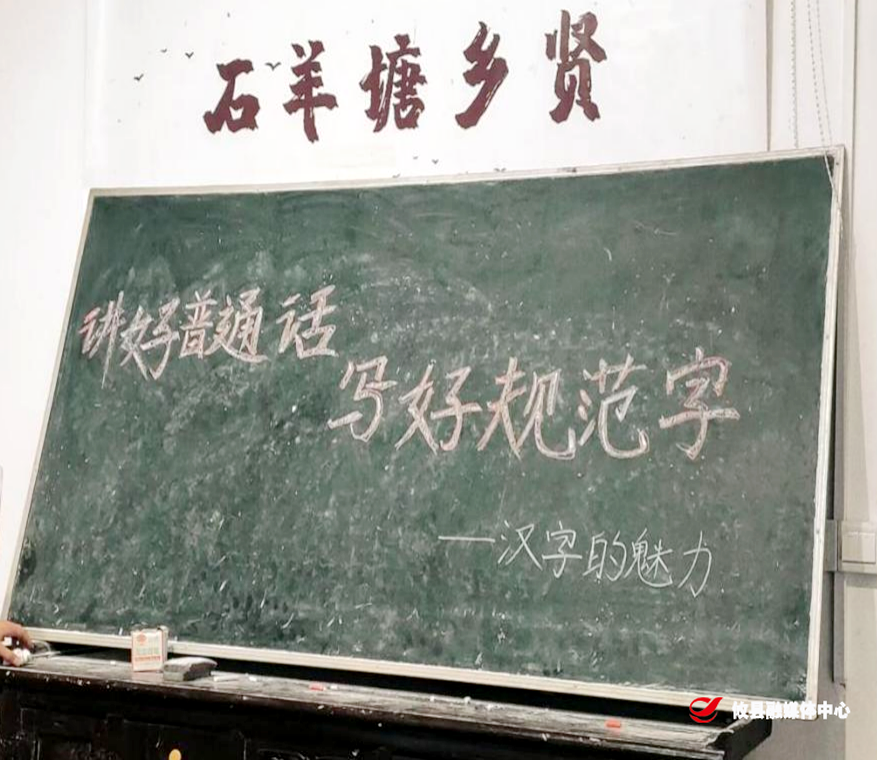 石羊塘乡贤
讲好普通话
写好规范字
—汉字的魅力
攸县融媒体中心